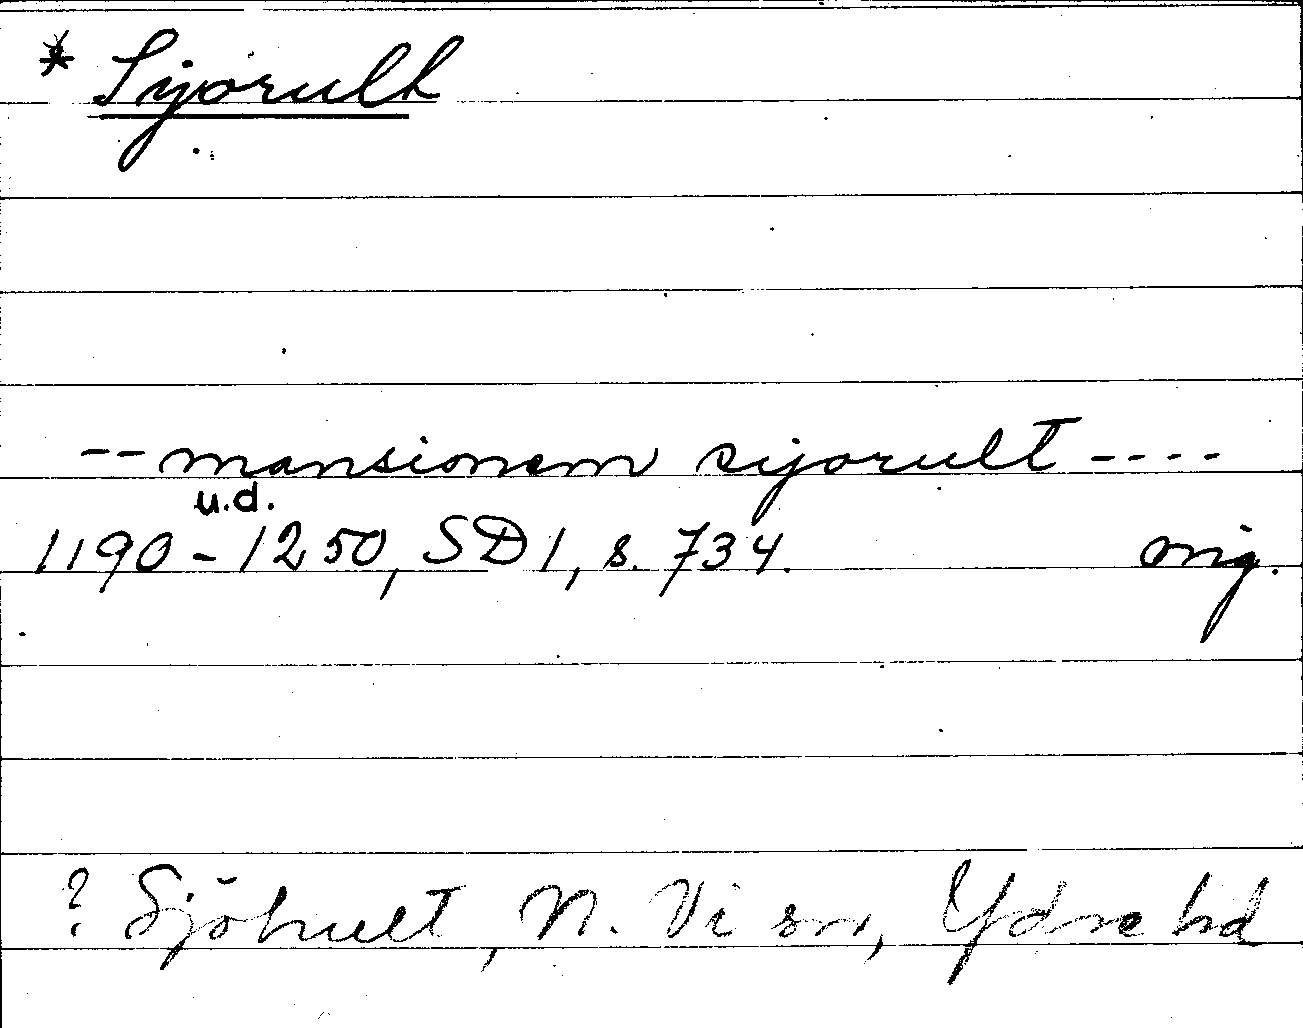 * Sijorult
-- mansionem sijorult ----
u.d.
1190-1250, SD 1, s. 734. orig.
? Sjöhult, N. Vi sn, Ydre hd